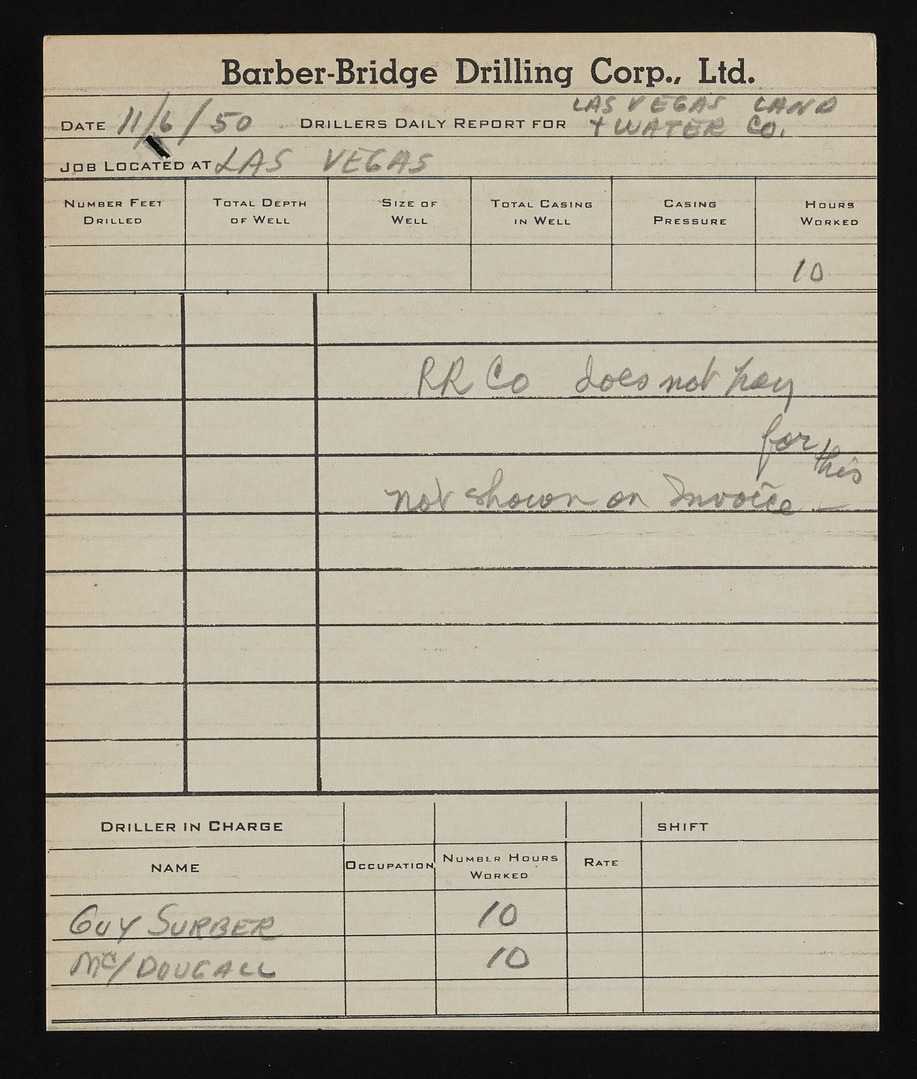 Barber-Bridge Drilling Corp., Ltd.
DATE 11/6/50 DRILLERS DAILY REPORT FOR LAS VEGAS LAND
+ WATER CO.
JOB LOCATED AT LAS VEGAS
NUMBER FEET DRILLED TOTAL DEPTH OF WELL SIZE OF WELL TOTAL CASING IN WELL CASING PRESSURE HOURS WORKED
10
RR Co does not pay
for this
not shown on Invoice —
DRILLER IN CHARGE SHIFT
NAME OCCUPATION NUMBER HOURS WORKED RATE
GUY SURBER 10
Mc/DOUGALL 10